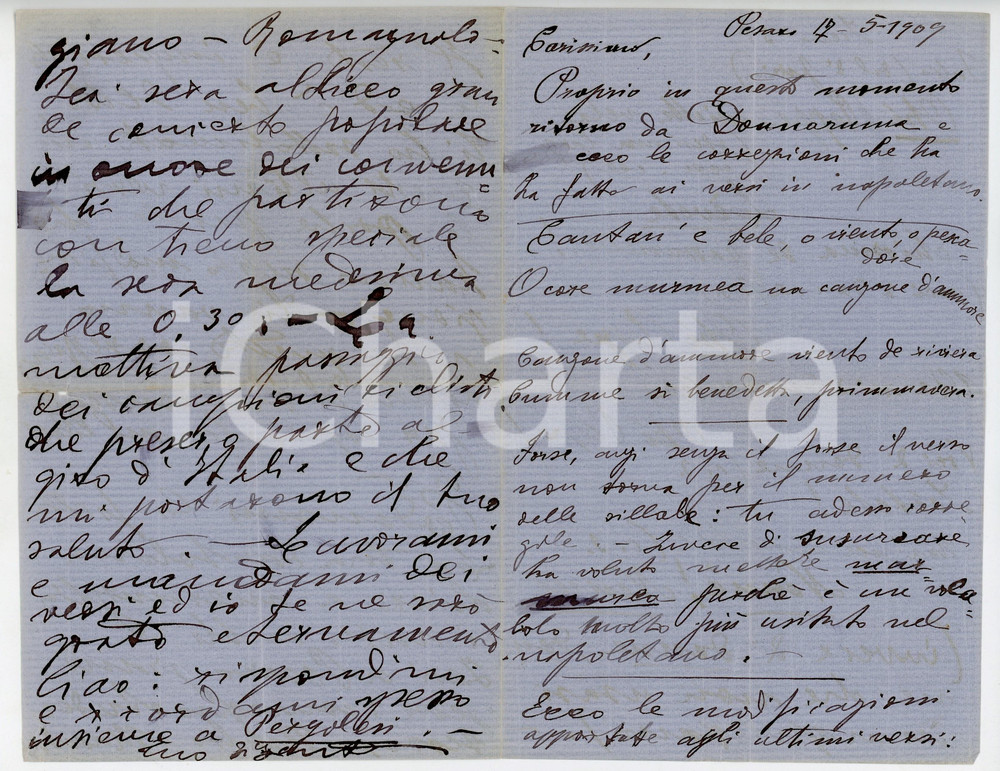 Pesaro 17-5-1909
Carissimo,
Proprio in questo momento
ritorno da Donnaruma e
ecco le correzioni che ha
ha fatto ai versi in napoletano.
Cantan' e bele, o viento, o pesca=
dore
O core murmea na canzone d'ammore
Canzone d'ammore viento de riviera
Cumme si benedetta, primmavera.
Forse, anzi senza il forse il verso
non torna per il numero
delle sillabe: tu adesso corre=
gile. - Invece di susurrare
ha voluto mettere mur=
murea perchè è un voca=
bolo molto più usitato nel
napoletano. -
Ecco le modificazioni
apportate agli ultimi versi:
giano - Romagnolo =
Ieri sera al Liceo gran
de concerto popolare
in onore dei convenu=
ti che partirono
con treno speciale
la sera medesima
alle 0,30. - La
mattina passaggio
dei campioni ciclisti
che presero parte al
giro d'Italia e che
mi portarono il tuo
saluto. - Lavorami
e mandami dei
versi ed io te ne sarò
grato eternamente
Ciao: rispondimi
e ricordami spesso
insieme a Pergolesi. -
tuo
iCharta